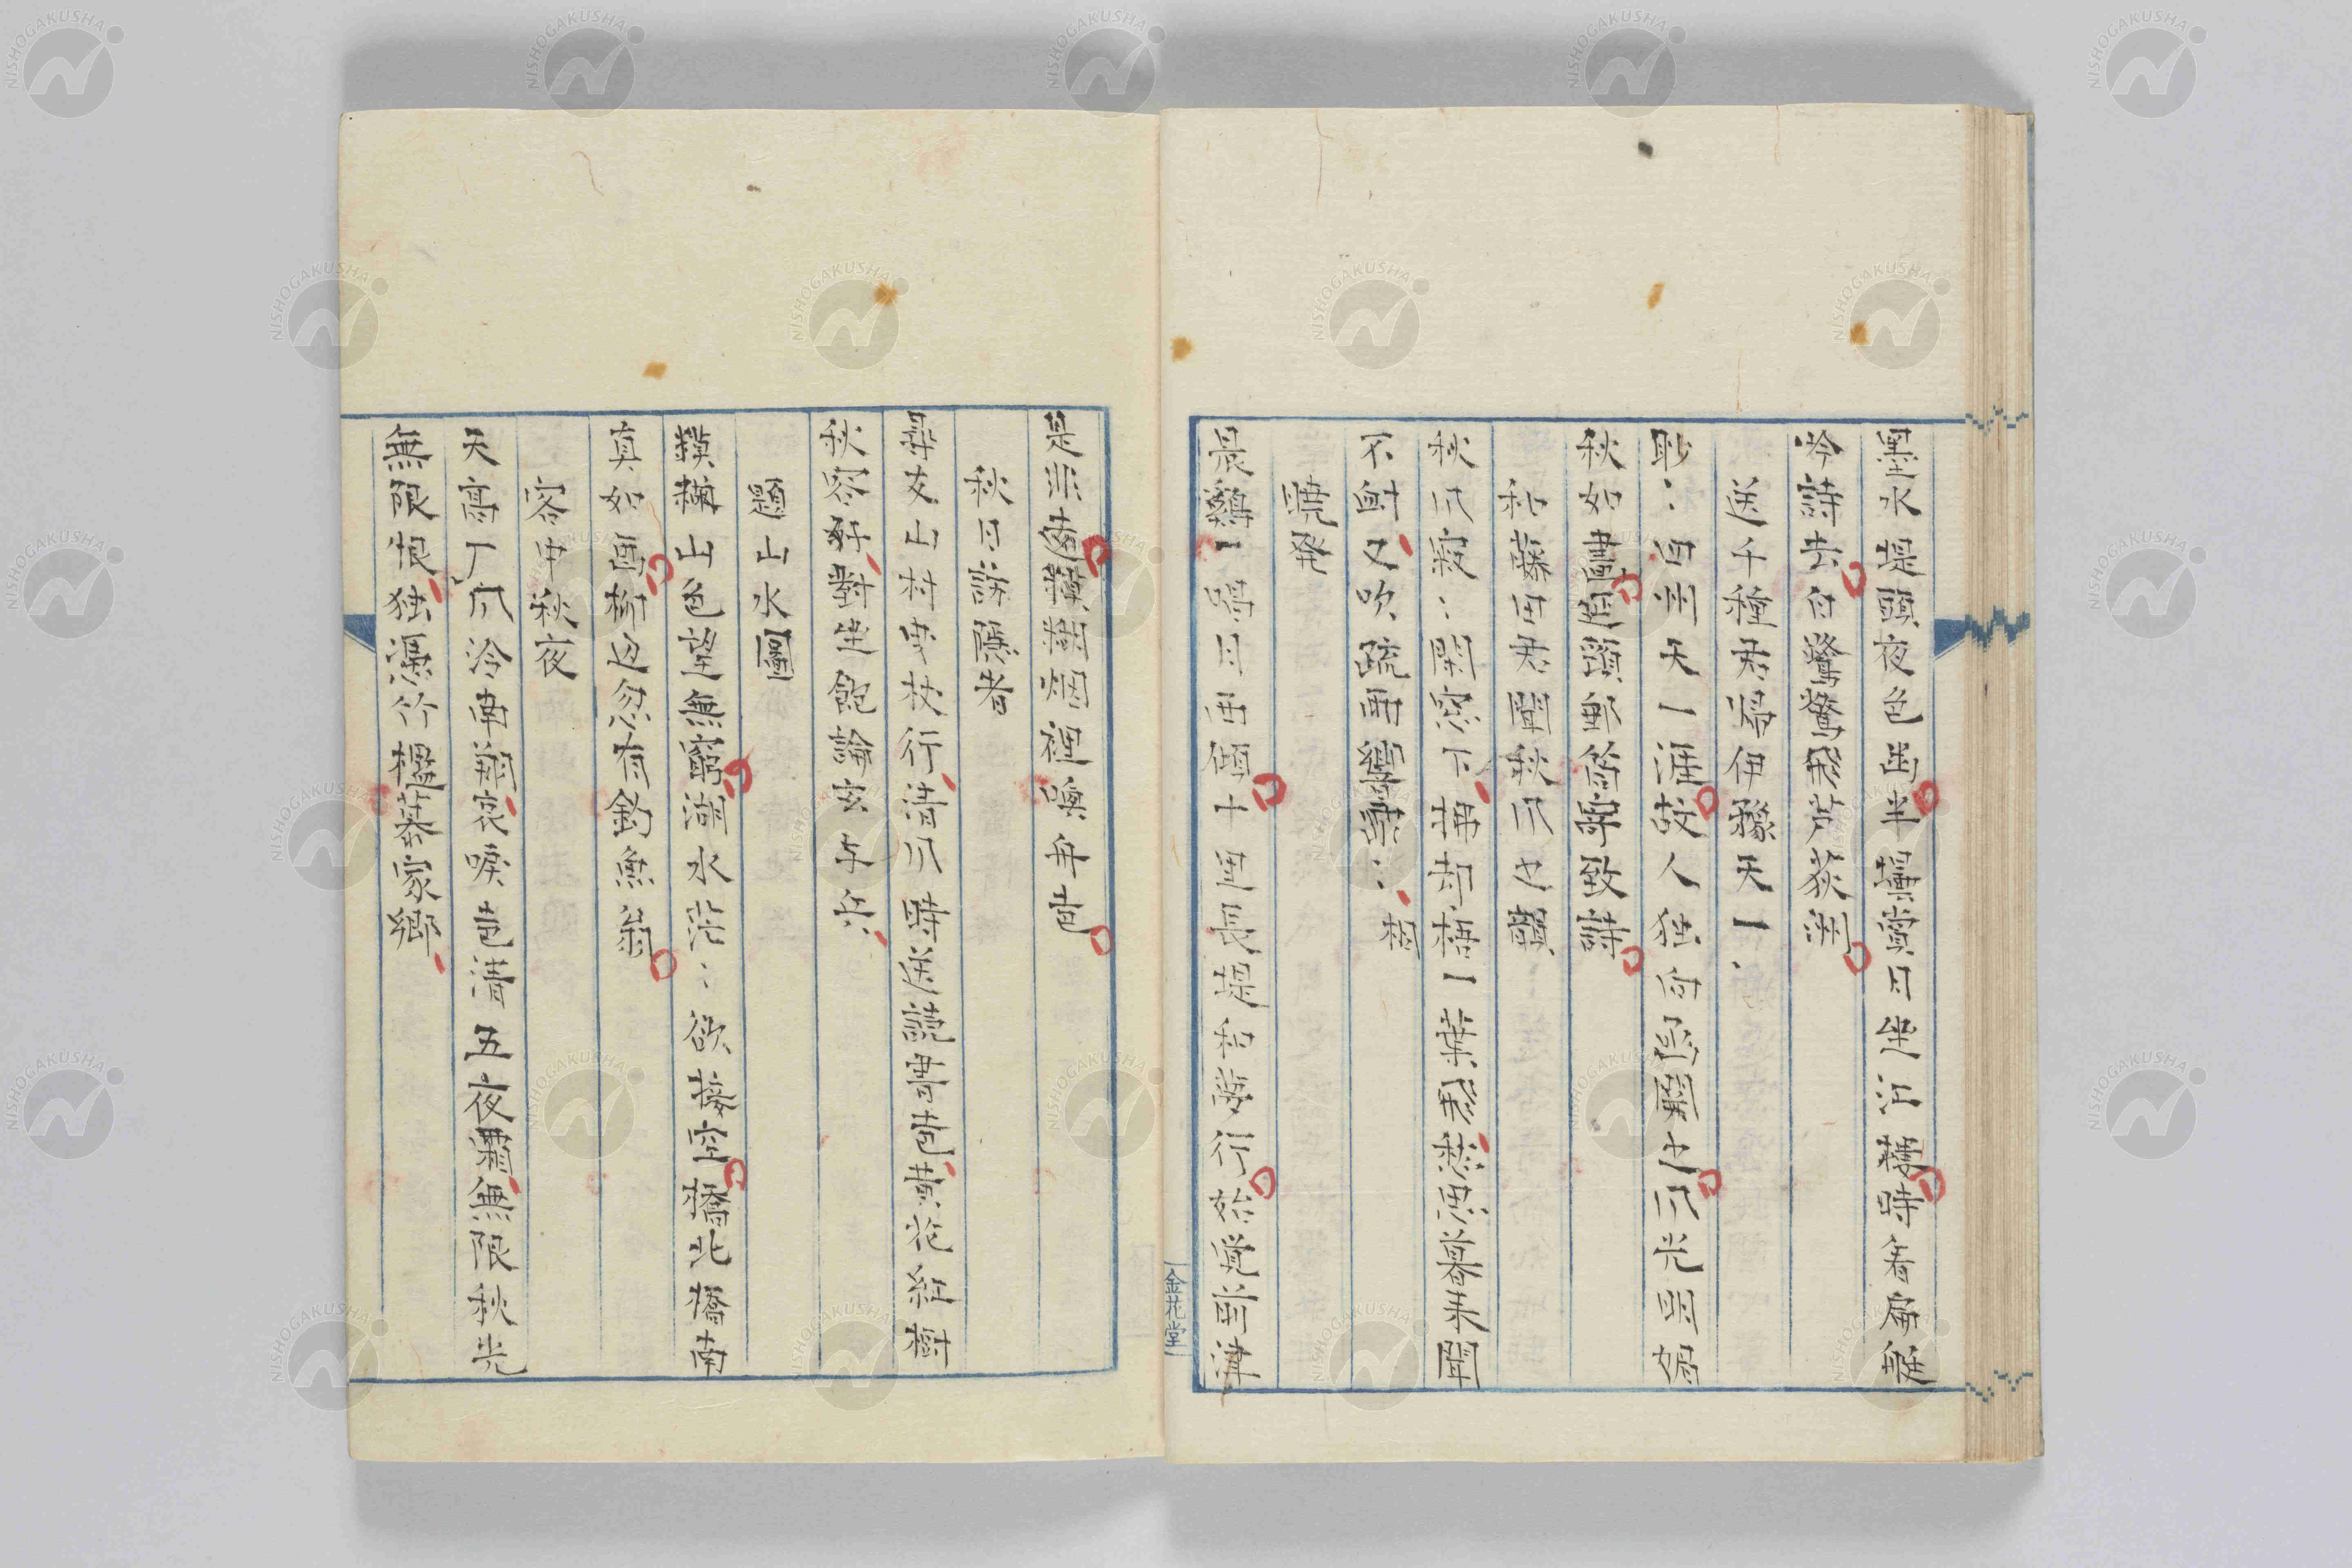 墨水堤頭夜色幽半壜賞月坐江楼時看扁艇
吟詩去白鷺驚飛芦荻洲
送千種君帰伊豫天一
眇〻四州天一涯故人独向函関之爪光明媚
秋如畫逓頭郵筒寄致詩
和藤田君聞秋爪之韻
秋爪寂〻閑窓下拂却梧一葉飛愁思暮来聞
不耐又吹疏雨響蕭〻樹
暁発
晨鷄一唱月西傾十里長堤和夢行始覚前津
是非遠模糊烟裡喚舟声
秋日訪隠者
尋友山村曳杖行清爪時送読書声黄花紅樹
秋容好對坐飽論玄与兵
題山水圖
模糊山色望無窮湖水茫〻欲接空橋北橋南
真如画柳辺忽有釣魚翁
客中秋夜
天高丁爪冷南翔哀唳声清五夜霜無限秋光
無限恨独凭竹欄慕家郷
金花堂
NISHOGAKUSHA